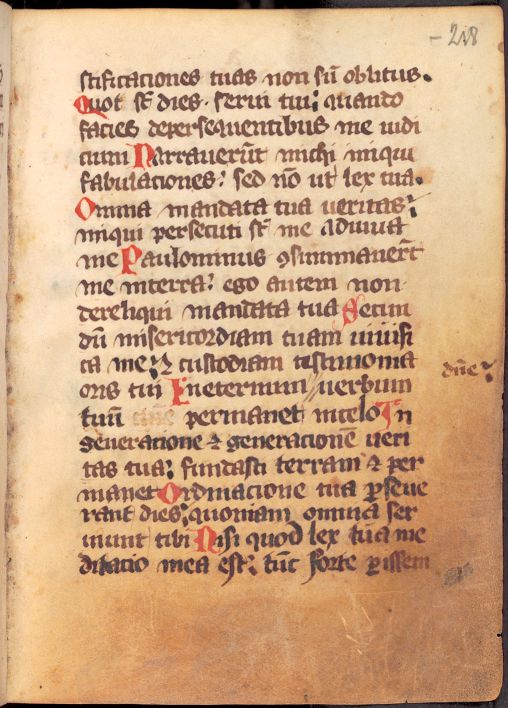 - 218
stificaciones tuas non sū oblitus.
Quot sт̄ dies. serui tui: quando
facies de persequentibus me iudi
cium Narrauerūt michi iniqui
fabulaciones: sed nō ut lex tua.
Omnia mandata tua ueritas:
iniqui persecuti st̄ me adiuua
me Paulominus ꝯsummauerūt
me interra: ego autem non
dereliqui mandata tua Secun
dū misericordiam tuam uiuifi
ca me: ⁊ custodiam testimonia
oris tui Ineternum // uerbum
tuū permanet incelo In
generacione ⁊ generacionē ueri
tas tua: fundasti terram ⁊ per
manet Ordinacione tua ꝑseue
rant dies: quoniam omnia ser
uiunt tibi Nisi quod lex tua me
ditatio mea est: tūc forte ꝑissem
dn̄e: